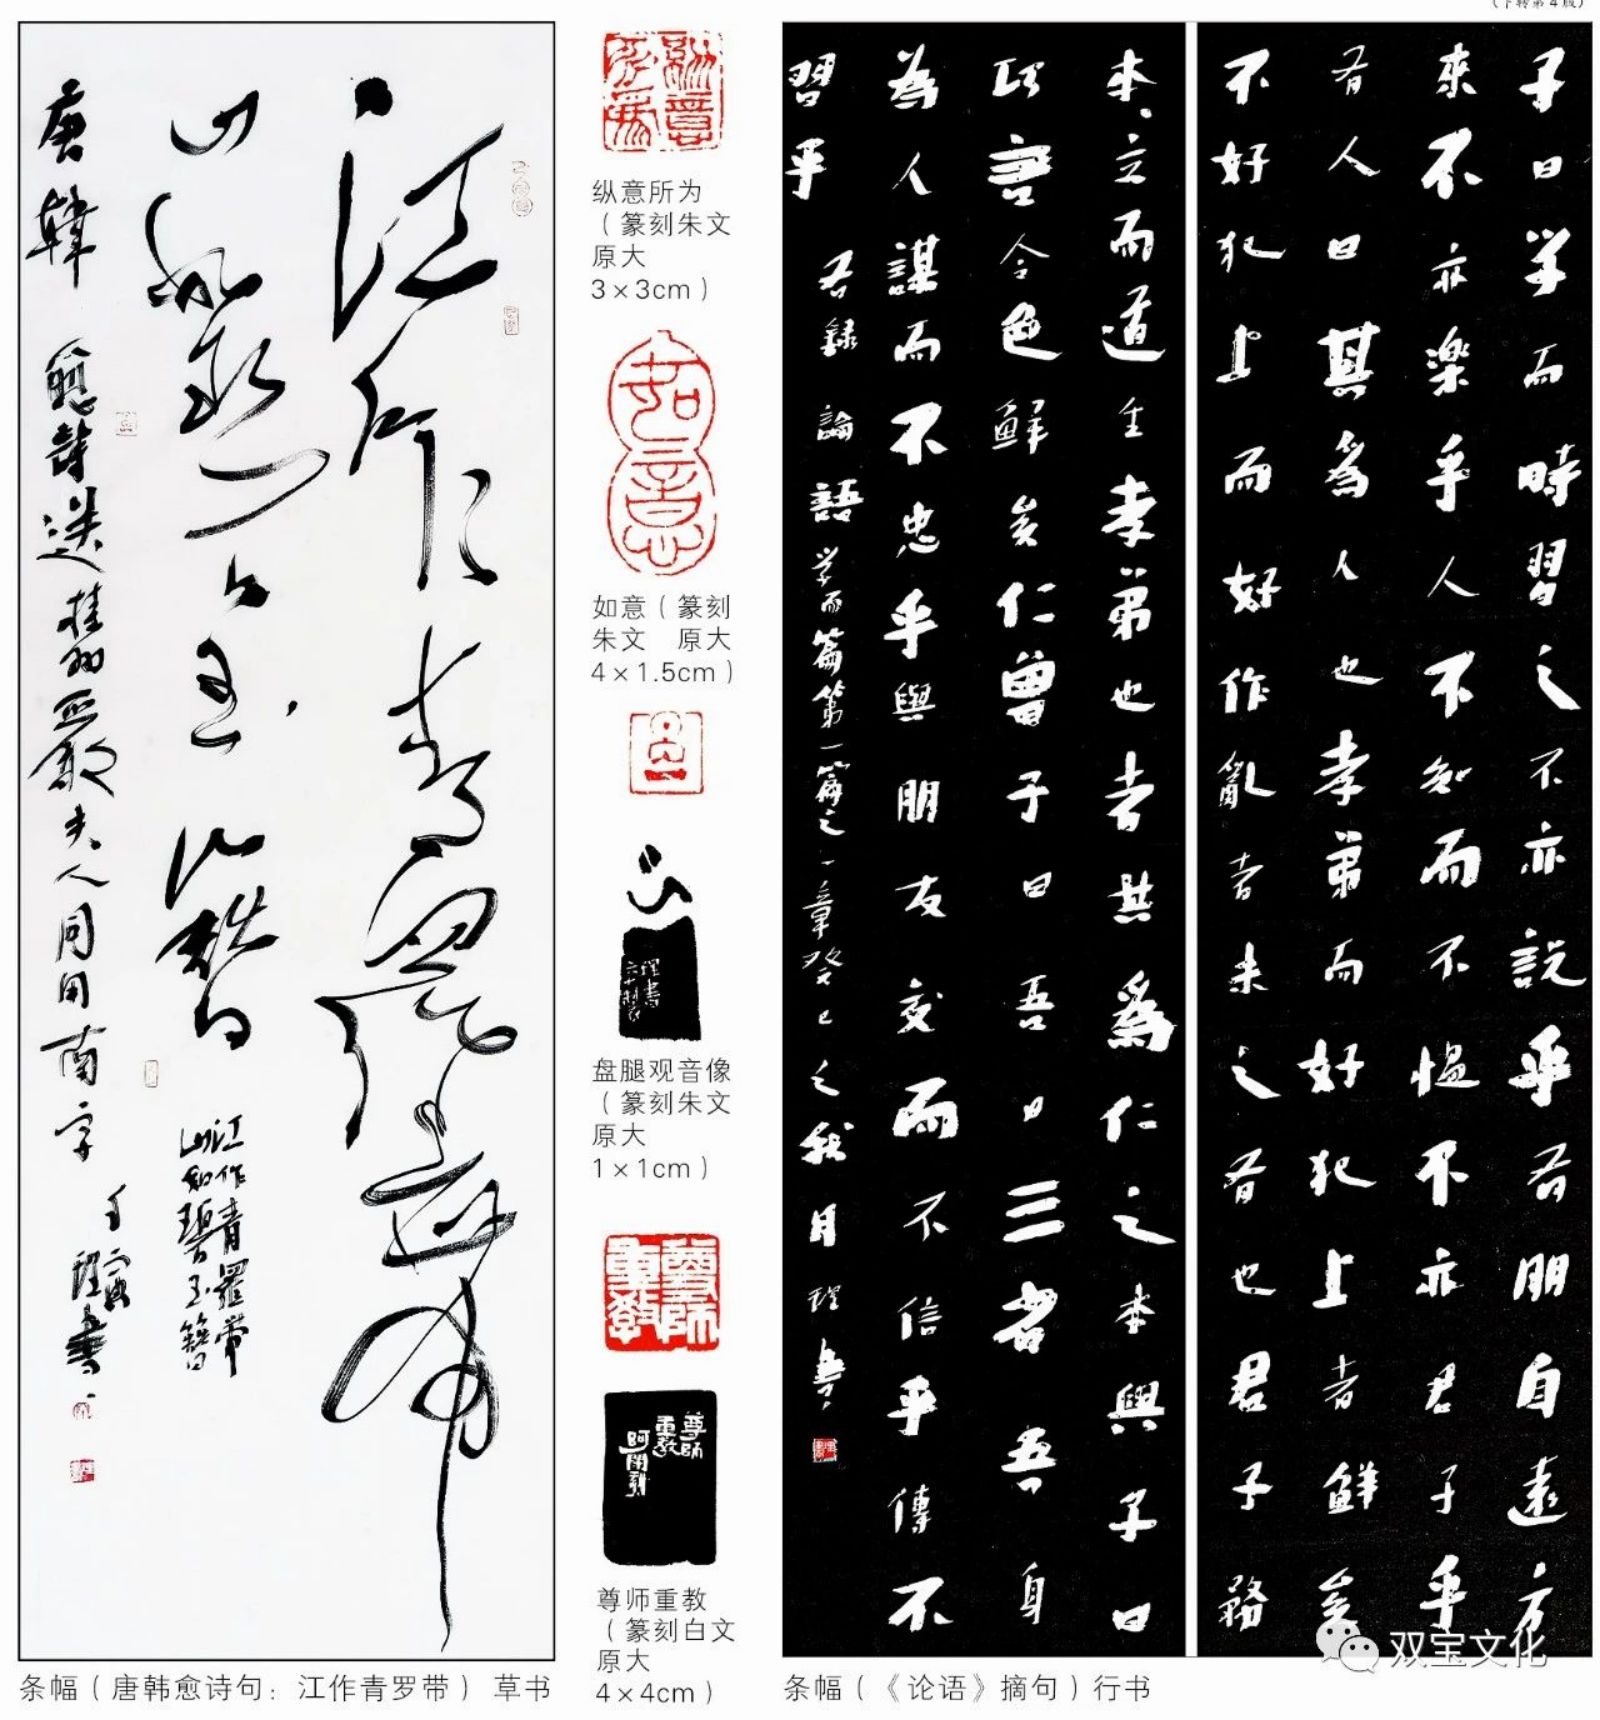 （下转第4版）
江作青羅帶
山如碧玉簪
江作青羅帶
山如碧玉簪
唐韓愈詩送桂州嚴夫人同用南字
壬寅
理書
纵意所为
（篆刻朱文
原大
3×3cm）
如意
如意（篆刻
朱文　原大
4×1.5cm）
盘腿观音像
（篆刻朱文
原大
1×1cm）
尊師
重教
尊師
重教
尊师重教
（篆刻白文
原大
4×4cm）
子曰学而時習之不亦説乎有朋自遠方
來不亦樂乎人不知而不愠不亦君子乎
有人曰其為人也孝弟而好犯上者鮮矣
不好犯上而好作亂者未之有也君子務
本、立而道生孝弟也者其為仁之本與子曰
巧言令色鮮矣仁曾子曰吾日三省吾身
為人謀而不忠乎與朋友交而不信乎傳不
習乎
右録論語学而篇第一篇之一章癸巳之秋月理書
条幅（唐韩愈诗句：江作青罗带）草书
条幅（《论语》摘句）行书
双宝文化